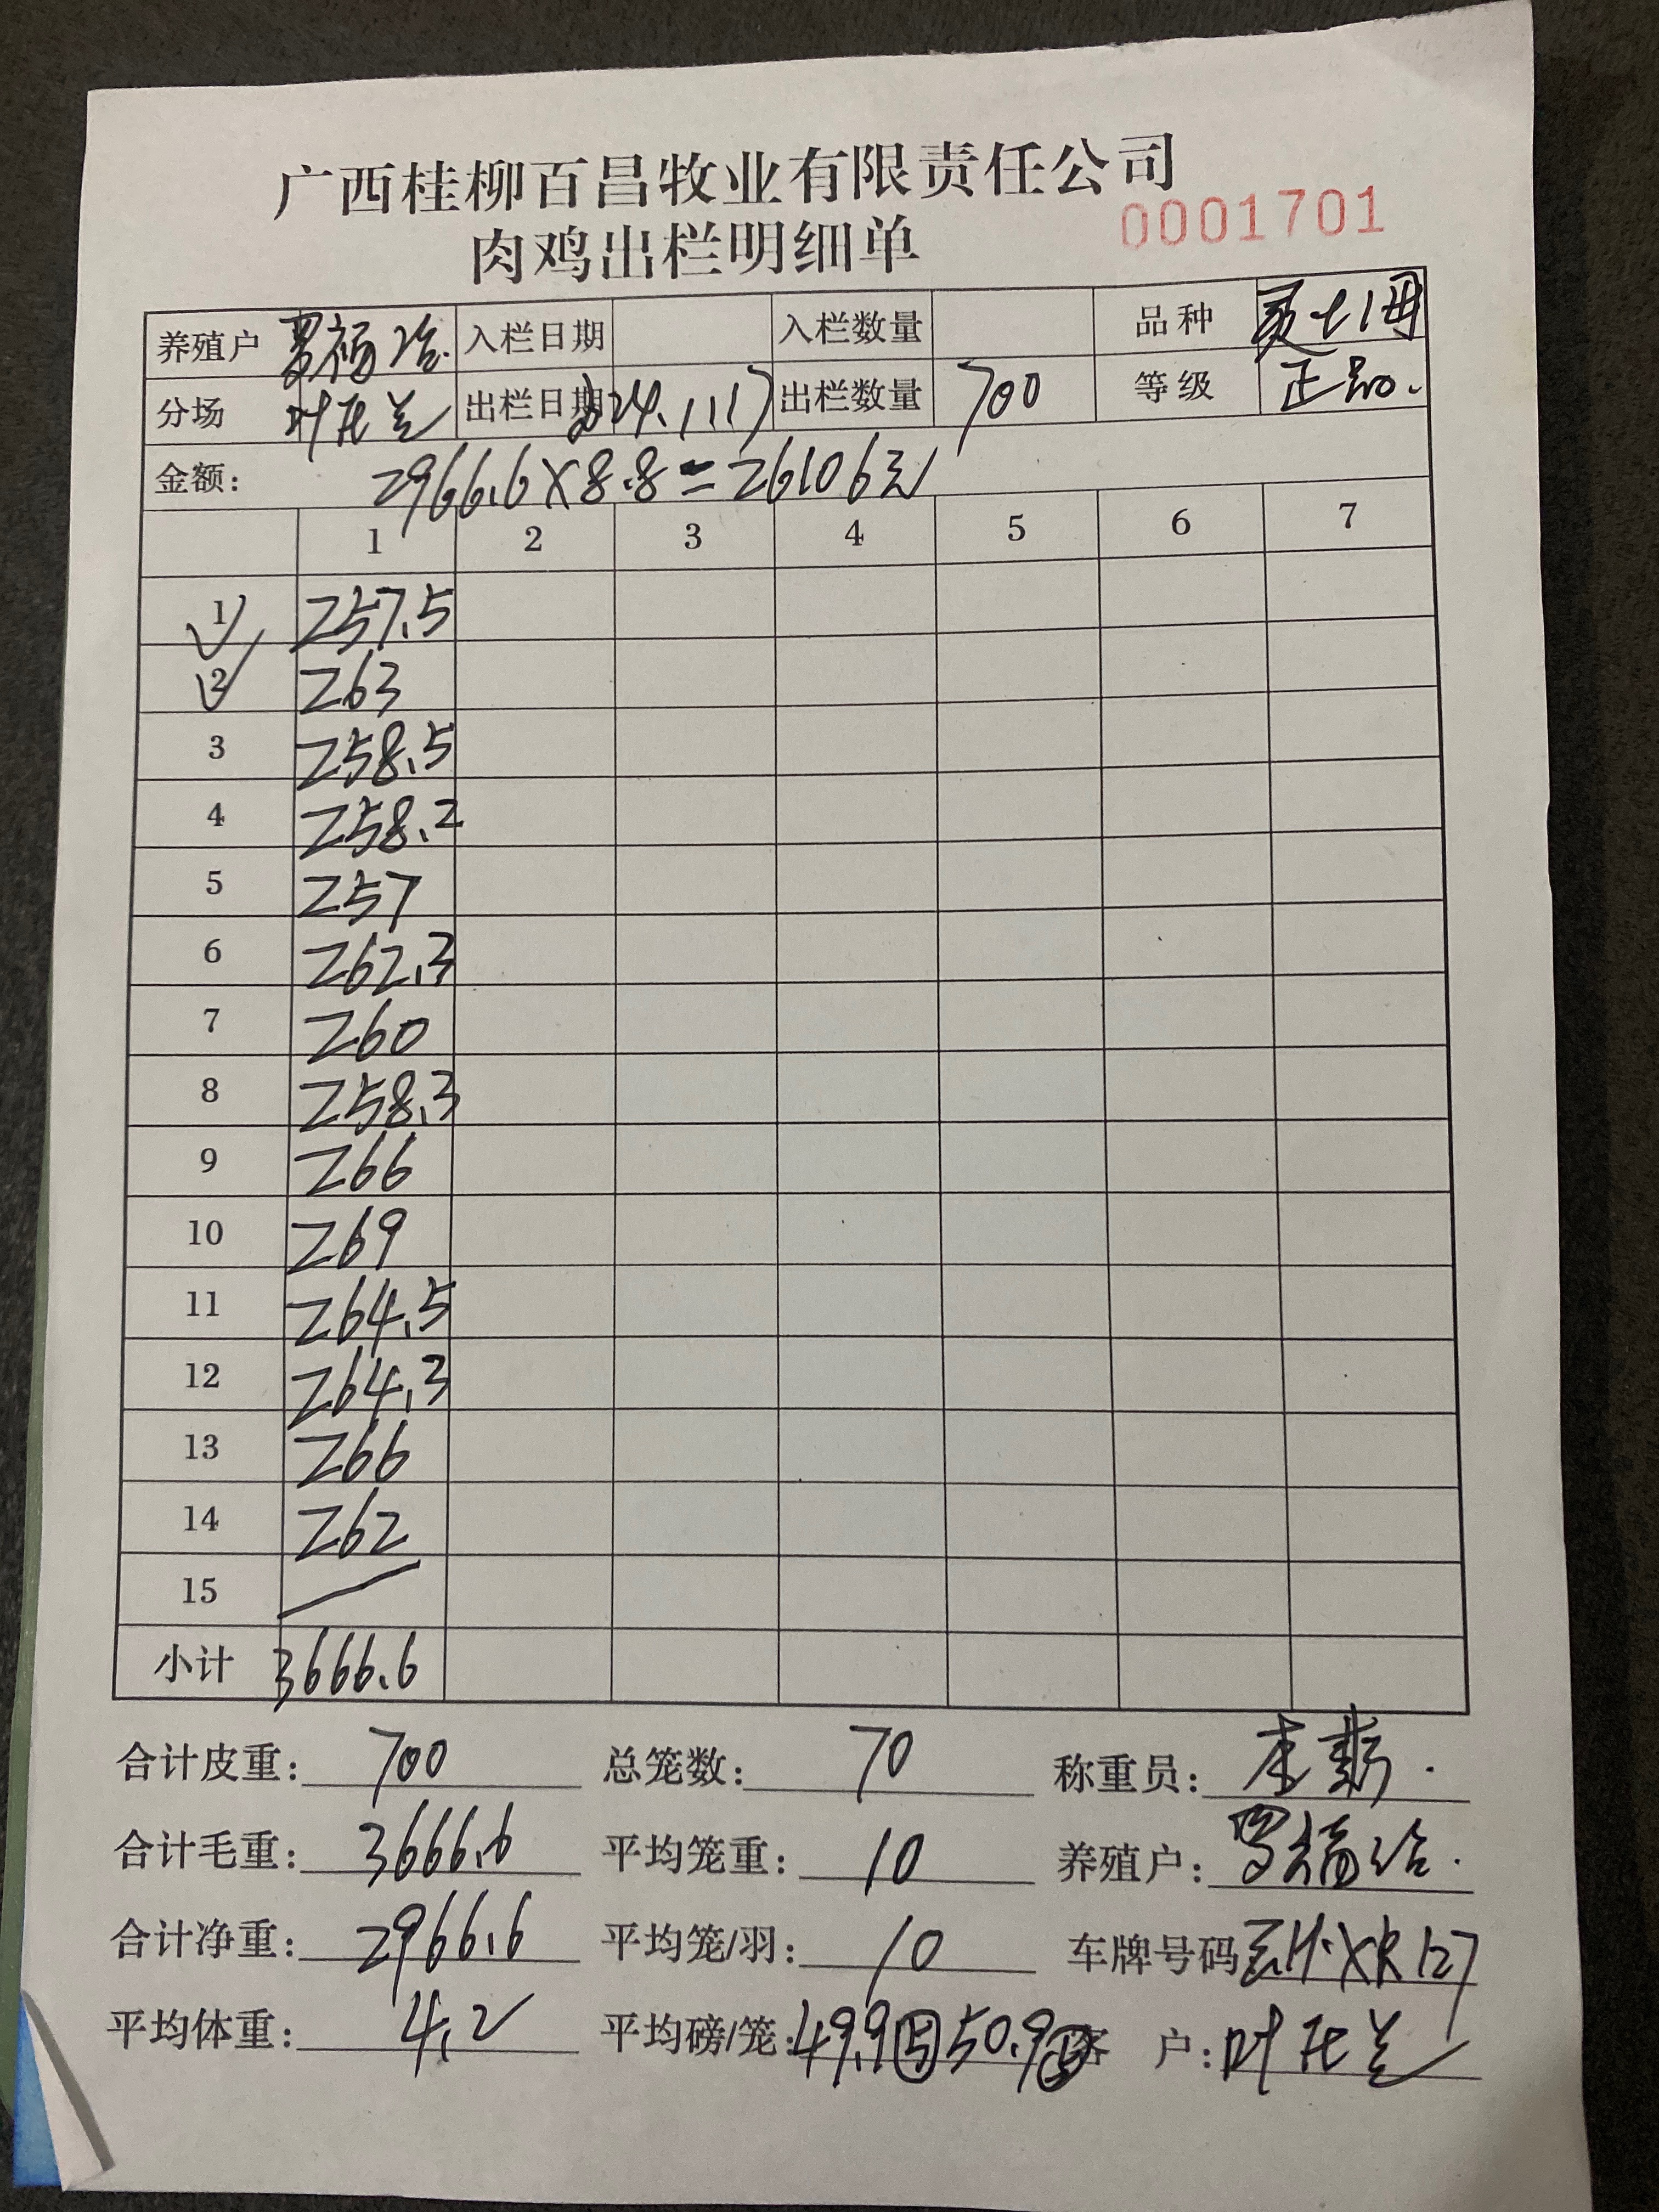 广西桂柳百昌牧业有限责任公司
0001701
肉鸡出栏明细单
养殖户 罗福 入栏日期 入栏数量 品种
分场 叶 兰 出栏日期 2024.1.17 出栏数量 700 等级 正品.
金额: 2966.6×8.8=26106元
1 2 3 4 5 6 7
1 257.5
2 263
3 258.5
4 258.2
5 257
6 262.3
7 260
8 258.3
9 266
10 269
11 264.5
12 264.3
13 266
14 262
15
小计 3666.6
合计皮重: 700 总笼数: 70 称重员:
合计毛重: 3666.6 平均笼重: 10 养殖户: 罗福
合计净重: 2966.6 平均笼/羽: 10 车牌号码
平均体重: 4.2 平均磅/笼: 49.9 50.9 客 户: 叶 兰